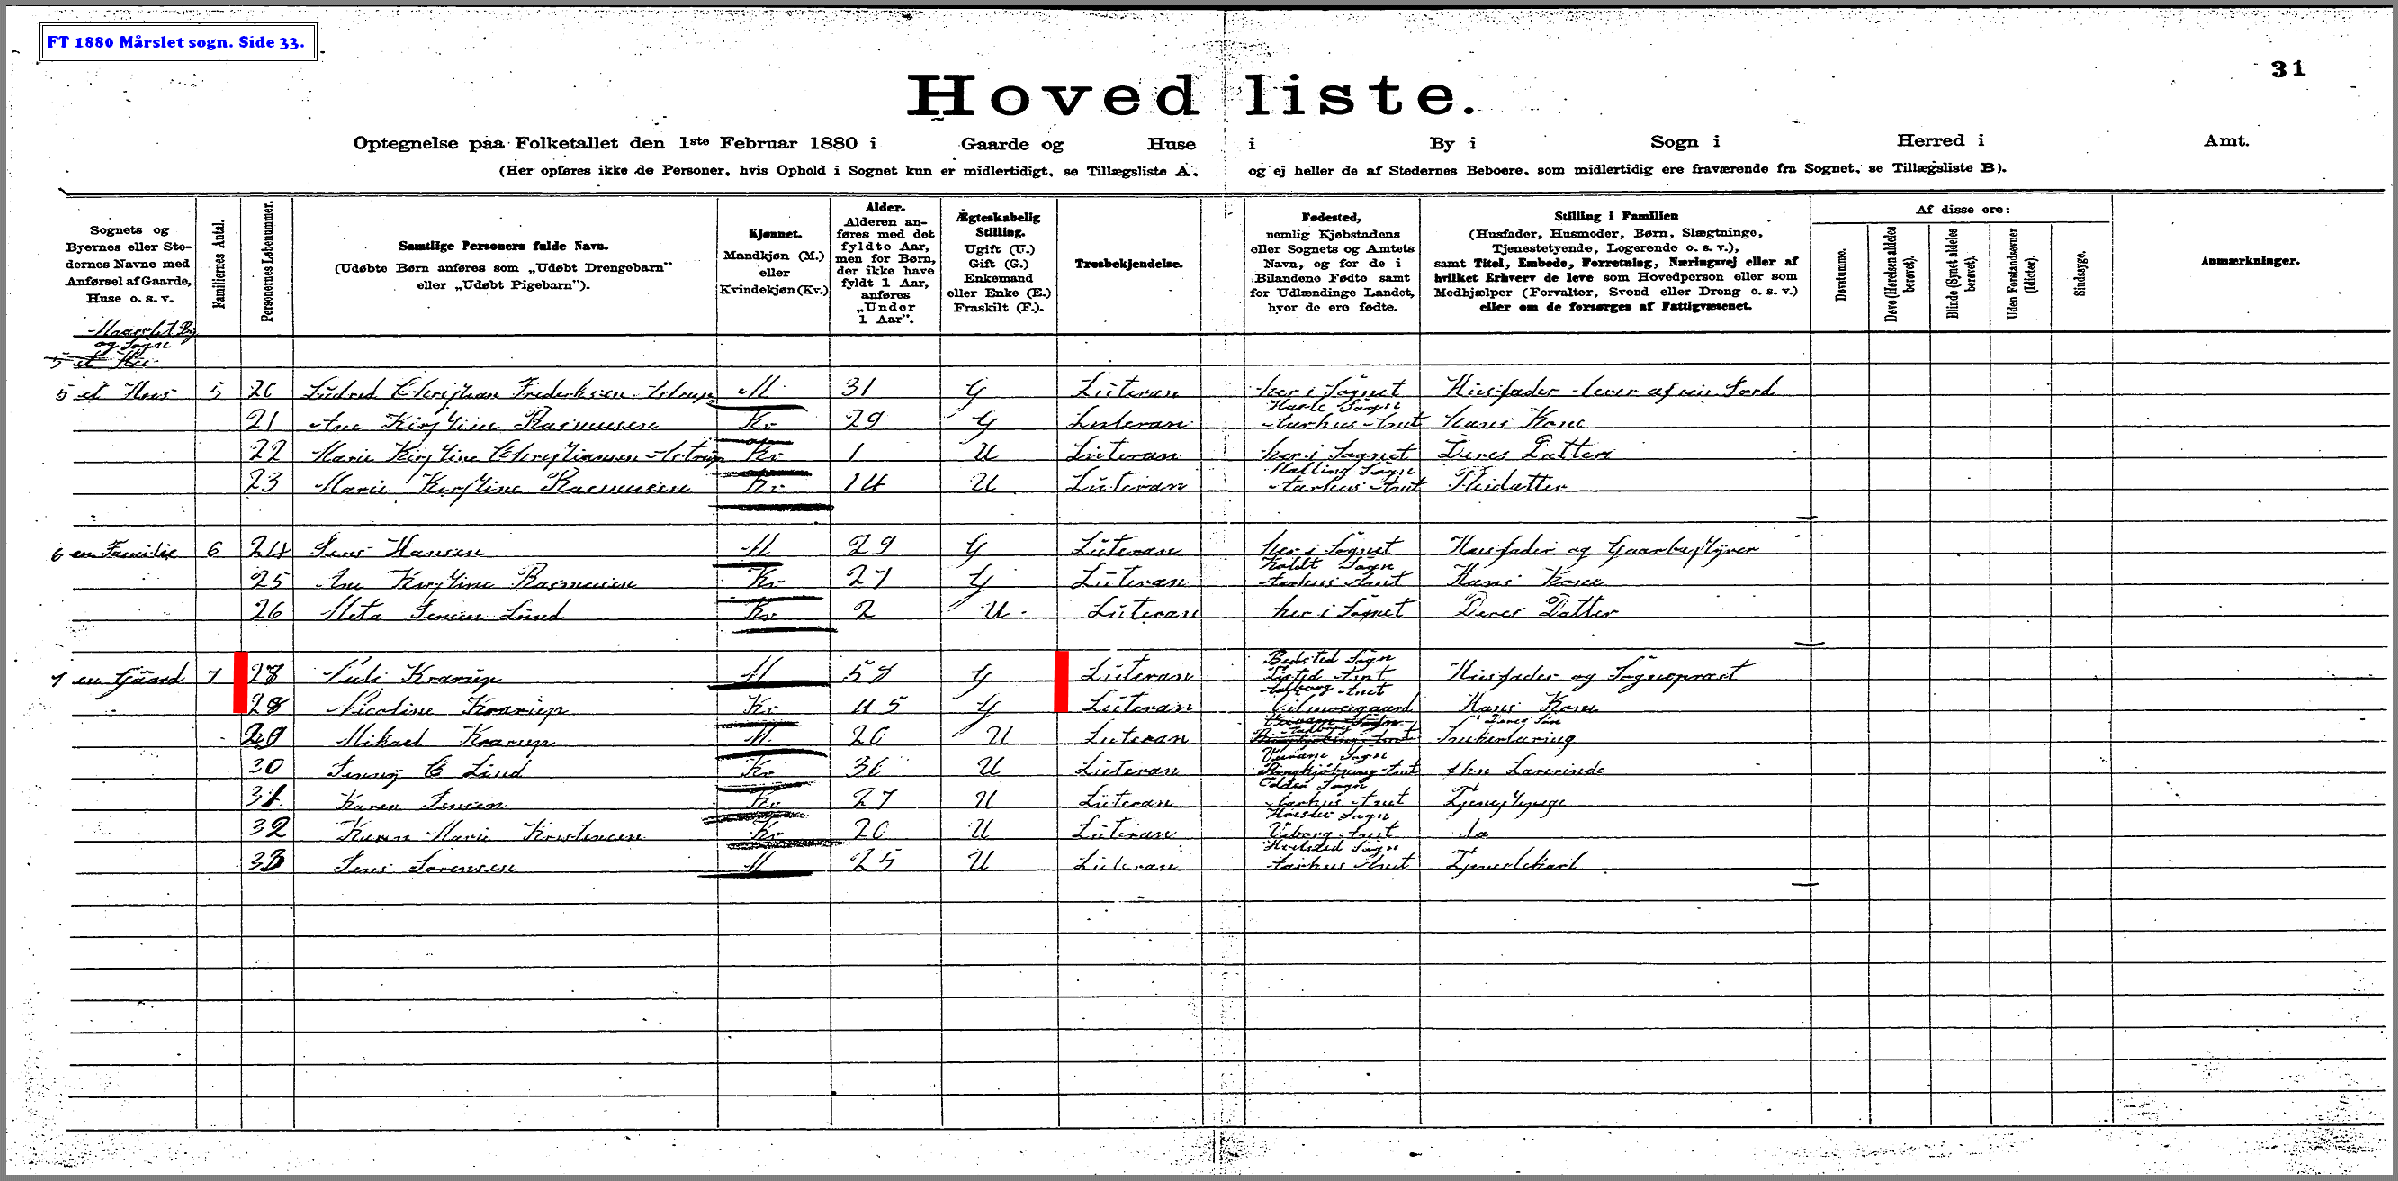 FT 1880 Mårslet sogn. Side 33.
31
Hovedliste.
Optegnelse paa Folketallet den 1ste Februar 1880 i Gaarde og Huse i By i Sogn i Herred i Amt.
(Her opføres ikke de Personer, hvis Ophold i Sognet kun er midlertidigt, se Tillægsliste A. og ej heller de af Stedernes Beboere, som midlertidig ere fraværende fra Sognet, se Tillægsliste B).
Sognets og
Byernes eller Ste-
dernes Navne med
Anførsel af Gaarde,
Huse o. s. v.
Familiernes Antal.
Personernes Løbenummer.
Samtlige Personers fulde Navn.
(Udøbte Børn anføres som „Udøbt Drengebarn“
eller „Udøbt Pigebarn“).
Kjønnet.
Mandkjøn (M.)
eller
Kvindekjøn (Kv.)
Alder.
Alderen an-
føres med det
fyldte Aar,
men for Børn,
der ikke have
fyldt 1 Aar,
anføres
„Under
1 Aar“.
Ægteskabelig
Stilling.
Ugift (U.)
Gift (G.)
Enkemand
eller Enke (E.)
Fraskilt (F.).
Trosbekjendelse.
Fødested,
nemlig Kjøbstadens
eller Sognets og Amtets
Navn, og for de i
Bilandene Fødte samt
for Udlændinge Landet,
hvor de ere fødte.
Stilling i Familien
(Husfader, Husmoder, Børn, Slægtninge,
Tjenestetyende, Logerende o. s. v.),
samt Titel, Embede, Forretning, Næringsvej eller af
hvilket Erhverv de leve som Hovedperson eller som
Medhjælper (Forvalter, Svend eller Dreng o. s. v.)
eller om de forsørges af Fattigvæsenet.
Af disse ere:
Døvstumme.
Døve (Hørelsen aldeles
berøvet).
Blinde (Synet aldeles
berøvet).
Uden Forstandsevner
(Idioter).
Sindssyge.
Anmærkninger.
Maarslet By
og Sogn
5 et Hus 5 20 Christian Frederiksen Astrup M 31 G Luteran her i Sognet Husfader lever af sin Jord
21 Ane Kirstine Rasmussen Kv 29 G Luteran Sogn Aarhus Amt Hans Kone
22 Marie Kirstine Christiansen Astrup Kv 1 U Luteran her i Sognet Deres Datter
23 Marie Kirstine Rasmussen Kv 14 U Luteran Malling Sogn Aarhus Amt Pleidatter
6 en Familie 6 24 Jens Hansen M 29 G Luteran her i Sognet Husfader og Gaardbestyrer
25 Ane Kirstine Rasmussen Kv 27 G Luteran Holdt Sogn Aarhus Amt Hans Kone
26 Meta Jensen Lund Kv 2 U Luteran her i Sognet Deres Datter
7 en Gaard 7 28 Krarup M 57 G Luteran Bedsted Sogn Tisted Amt Husfader og Sognepræst
28 Nicoline Krarup Kv 45 G Luteran Aalborg Amt Hans Kone
29 Mikael Krarup M 20 U Luteran Deres Søn
30 Jenny C Lund Kv 36 U Luteran Sogn Ringkjøbing Amt Lærerinde
31 Karen Jensen Kv 27 U Luteran Odder Sogn Aarhus Amt Tjenestepige
32 Karen Marie Kristensen Kv 20 U Luteran Sogn Viborg Amt do
33 Jens Sørensen M 25 U Luteran Sogn Aarhus Amt Tjenestekarl